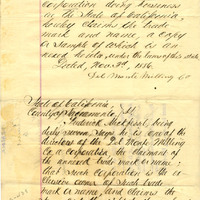 corporation doing business
in the State of California,
hereby claims the trade
mark and name, a copy
or sample of which is an
Dated, Nov. 3d, 1886.
Del Monte Milling Co
State of California,
County of Sacramento
being
duly sworn says he is one of the
directors of the Del Monte Milling
Co. a corporation, the claimant of
the annexed trade mark or name;
that such corporation is the
owner of such trade
mark or name, and claims the